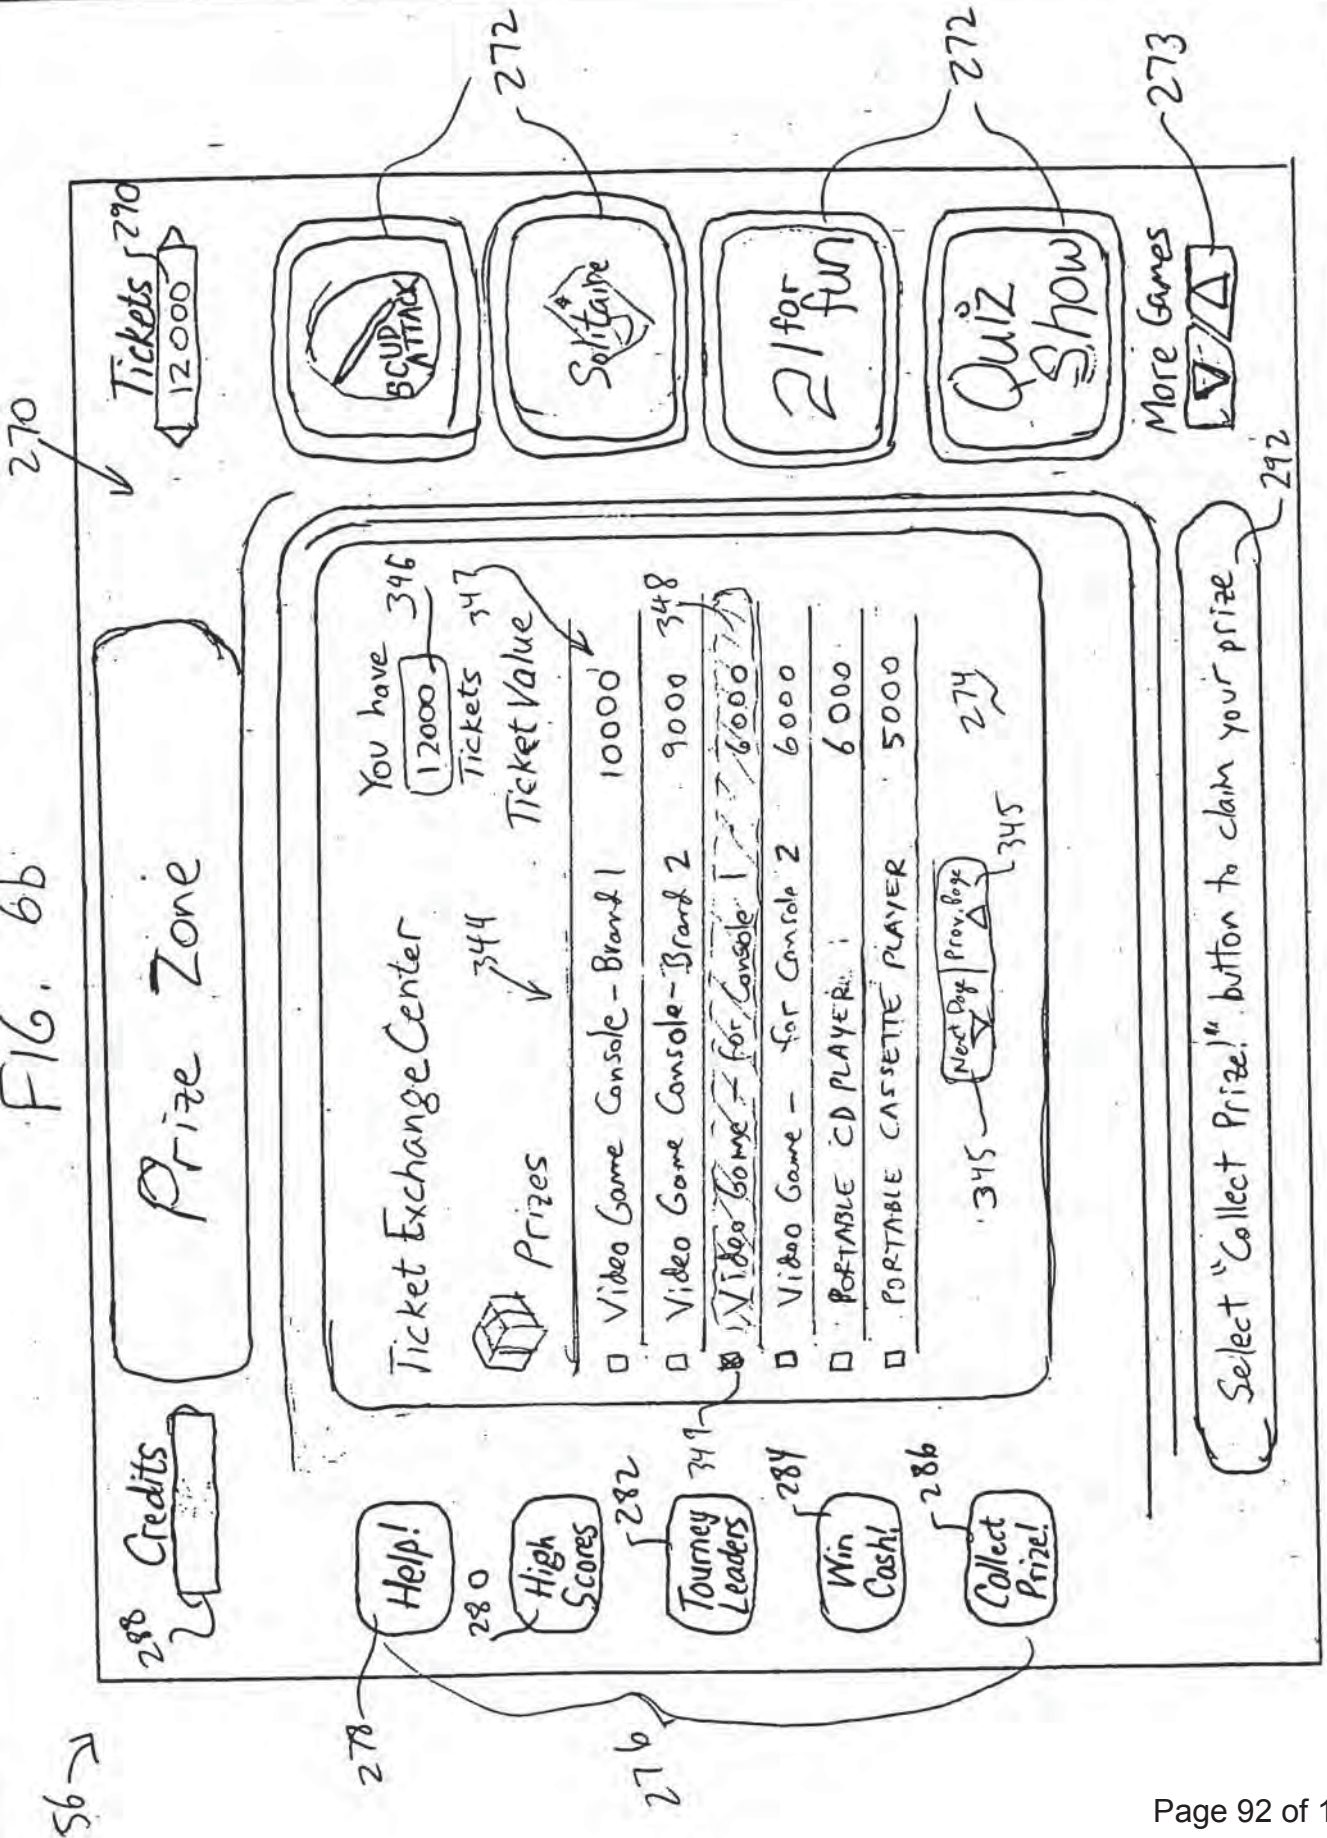 FIG. 6b
56
270
288
Credits
Prize Zone
Tickets
290
12000
278
Help!
280
High
Scores
282
Tourney
Leaders
349
284
Win
Cash!
286
Collect
Prize!
276
Ticket Exchange Center
You have
12000
346
Tickets
Prizes
344
Ticket Value
347
Video Game Console - Brand 1 10000
Video Game Console - Brand 2 9000
348
Video Game - for Console 1 6000
Video Game - for Console 2 6000
PORTABLE CD PLAYER 6000
PORTABLE CASSETTE PLAYER 5000
345
Next Page
Prev. Page
345
274
SCUD
ATTACK
272
Solitaire
21 for
fun
272
Quiz
Show
More Games
273
Select "Collect Prize!" button to claim your prize
292
Page 92 of 1